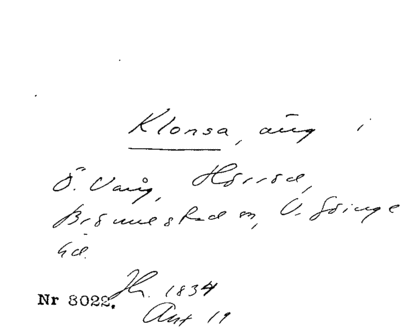 Klonsa, äng i
Ö. Vång, Hörröd,
Brönnestad sn, V. Göinge
hd.
Nr 8022. Hr. 1834
Akt 19